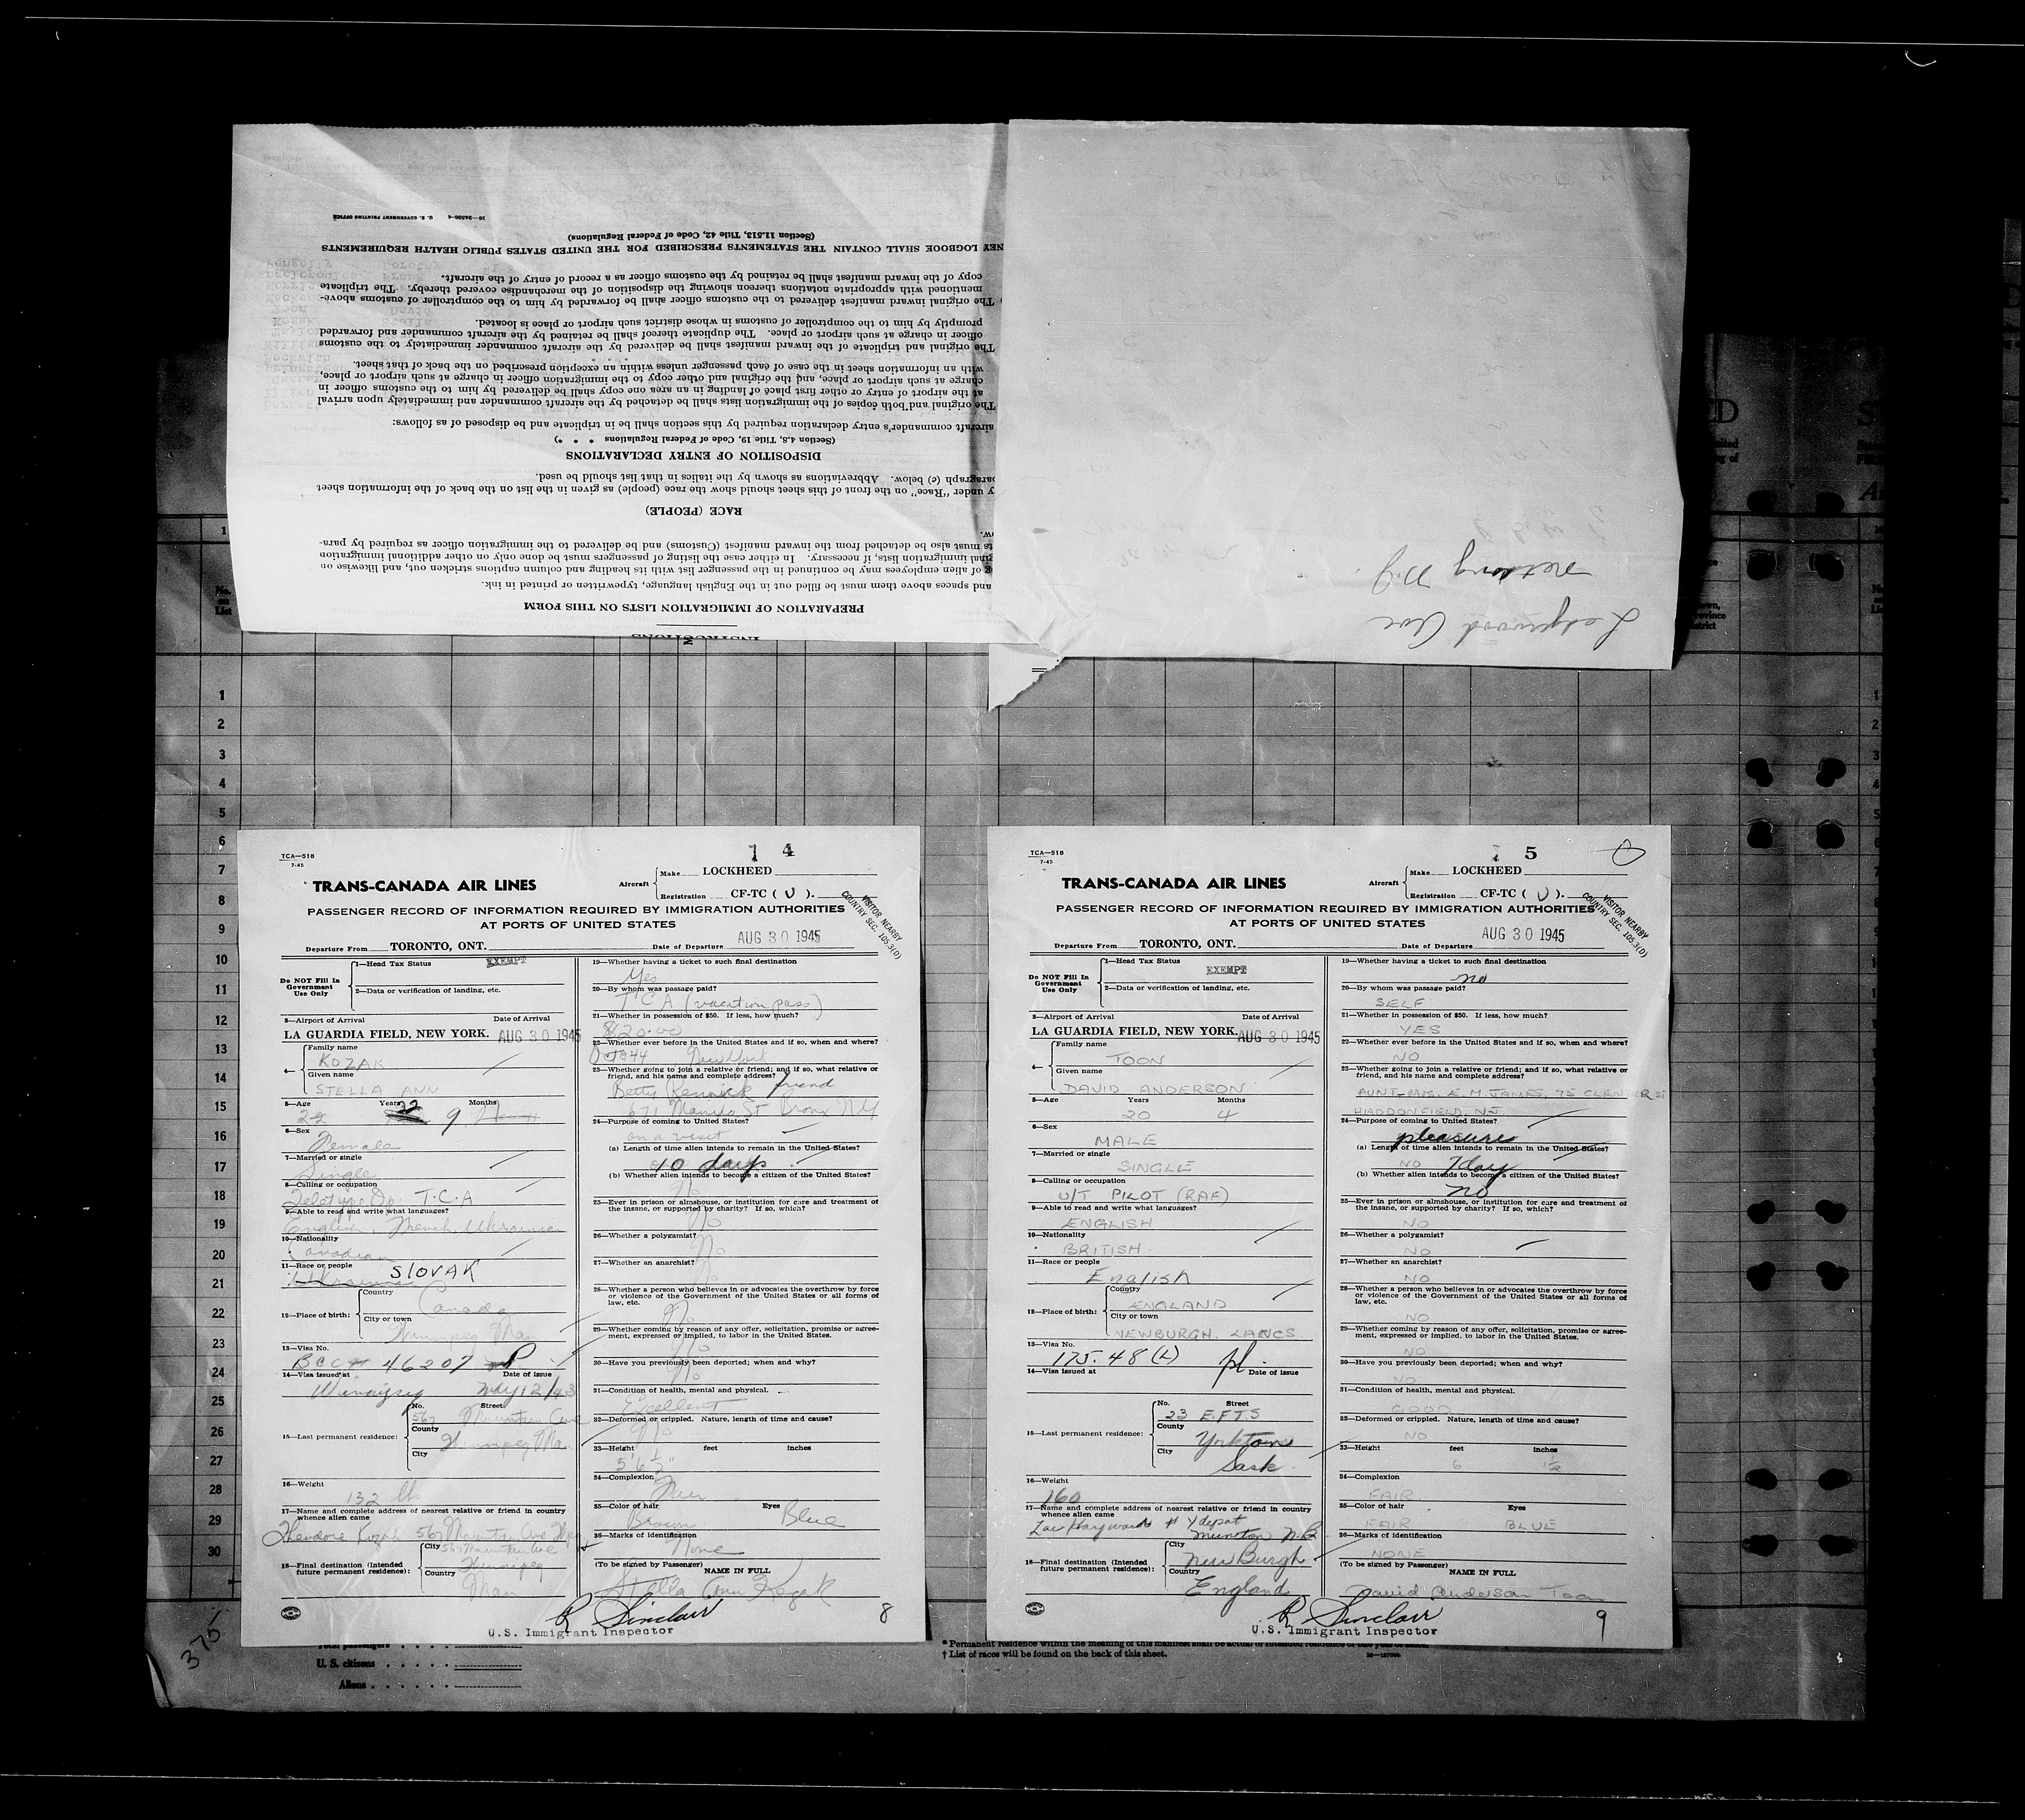 INSTRUCTIONS
PREPARATION OF IMMIGRATION LISTS ON THIS FORM
and spaces above them must be filled out in the English language, typewritten or printed in ink.
of alien employees may be continued in the passenger list with its heading and column captions stricken out, and likewise on
immigration lists, if necessary. In either case the listing of passengers must be done only on other additional immigration
must also be detached from the inward manifest (Customs) and be delivered to the immigration officer as required by para-
RACE (PEOPLE)
under "Race" on the front of this sheet should show the race (people) as given in the list on the back of the information sheet
paragraph (c) below. Abbreviations as shown by the italics in that list should be used.
DISPOSITION OF ENTRY DECLARATIONS
(Section 4.5, Title 19, Code of Federal Regulations * * *)
aircraft commander's entry declaration required by this section shall be in triplicate and be disposed of as follows:
The original and both copies of the immigration lists shall be detached by the aircraft commander and immediately upon arrival
at the airport of entry or other first place of landing in an area one copy shall be delivered by him to the customs officer in
charge at such airport or place, and the original and other copy to the immigration officer in charge at such airport or place,
with an information sheet in the case of each passenger unless within an exception prescribed on the back of that sheet.
The original and triplicate of the inward manifest shall be delivered by the aircraft commander immediately to the customs
officer in charge at such airport or place. The duplicate thereof shall be retained by the aircraft commander and forwarded
promptly by him to the comptroller of customs in whose district such airport or place is located.
The original inward manifest delivered to the customs officer shall be forwarded by him to the comptroller of customs above-
mentioned with appropriate notations thereon showing the disposition of the merchandise covered thereby. The triplicate
copy of the inward manifest shall be retained by the customs officer as a record of entry of the aircraft.
LOGBOOK SHALL CONTAIN THE STATEMENTS PRESCRIBED FOR THE UNITED STATES PUBLIC HEALTH REQUIREMENTS
(Section 11.513, Title 42, Code of Federal Regulations)
U. S. GOVERNMENT PRINTING OFFICE
Ledgewood Ave
Netcong N.J.
1
No. on List
1
2
3
4
5
6
7
8
9
10
11
12
13
14
15
16
17
18
19
20
21
22
23
24
25
26
27
28
29
30
TCA—518
7-45
14
TRANS-CANADA AIR LINES
Aircraft Make LOCKHEED
Registration CF-TC ( U ).
VISITOR NEARBY
COUNTRY SEC. 105.3(D)
PASSENGER RECORD OF INFORMATION REQUIRED BY IMMIGRATION AUTHORITIES
AT PORTS OF UNITED STATES
Departure From TORONTO, ONT. Date of Departure AUG 30 1945
Do NOT Fill In Government Use Only
1—Head Tax Status EXEMPT
2—Data or verification of landing, etc.
3—Airport of Arrival Date of Arrival
LA GUARDIA FIELD, NEW YORK. AUG 30 1945
4— Family name
KOZAK
Given name
STELLA ANN
5—Age Years Months
22 9
6—Sex
Female
7—Married or single
Single
8—Calling or occupation
Teletype Op. T.C.A
9—Able to read and write what languages?
English French Ukrainian
10—Nationality
Canadian
11—Race or people SLOVAK
Ukrainian
12—Place of birth: Country
Canada
City or town
Winnipeg Man
13—Visa No.
BCC# 46207
14—Visa issued at Date of issue
Winnipeg May 12/43
15—Last permanent residence: No. Street
567 Mountain Ave
County
Winnipeg Man.
City
16—Weight
132 lb.
17—Name and complete address of nearest relative or friend in country
whence alien came
Theodore Kozak 567 Mountain Ave Wpg
18—Final destination (Intended future permanent residence): City 567 Mountain Ave
Winnipeg
Country
Man
19—Whether having a ticket to such final destination
Yes
20—By whom was passage paid?
T C A (vacation pass)
21—Whether in possession of $50. If less, how much?
$20.00
22—Whether ever before in the United States and if so, when and where?
Oct 944 New York
23—Whether going to join a relative or friend; and if so, what relative or
friend, and his name and complete address?
Betty Rennick friend
671 Manida St Bronx N.Y
24—Purpose of coming to United States?
on a visit
(a) Length of time alien intends to remain in the United States?
10 days
(b) Whether alien intends to become a citizen of the United States?
No
25—Ever in prison or almshouse, or institution for care and treatment of
the insane, or supported by charity? If so, which?
No
26—Whether a polygamist?
No
27—Whether an anarchist?
No
28—Whether a person who believes in or advocates the overthrow by force
or violence of the Government of the United States or all forms of
law, etc.
No
29—Whether coming by reason of any offer, solicitation, promise or agree-
ment, expressed or implied, to labor in the United States.
No
30—Have you previously been deported; when and why?
No
31—Condition of health, mental and physical.
Excellent
32—Deformed or crippled. Nature, length of time and cause?
No
33—Height feet inches
5' 6½"
34—Complexion
35—Color of hair Eyes
Brown Blue
36—Marks of identification
None
(To be signed by Passenger) NAME IN FULL
Stella Ann Kozak
R Sinclair
U.S. Immigrant Inspector
8
TCA—518
7-45
5
TRANS-CANADA AIR LINES
Aircraft Make LOCKHEED
Registration CF-TC ( U ).
VISITOR NEARBY
COUNTRY SEC. 105.3(D)
PASSENGER RECORD OF INFORMATION REQUIRED BY IMMIGRATION AUTHORITIES
AT PORTS OF UNITED STATES
Departure From TORONTO, ONT. Date of Departure AUG 30 1945
Do NOT Fill In Government Use Only
1—Head Tax Status
EXEMPT
2—Data or verification of landing, etc.
3—Airport of Arrival Date of Arrival
LA GUARDIA FIELD, NEW YORK. AUG 30 1945
4— Family name
TOON
Given name
DAVID ANDERSON
5—Age Years Months
20 4
6—Sex
MALE
7—Married or single
SINGLE
8—Calling or occupation
U/T PILOT (RAF)
9—Able to read and write what languages?
ENGLISH
10—Nationality
BRITISH
11—Race or people
English
12—Place of birth: Country
ENGLAND
City or town
NEWBURGH. LANCS
13—Visa No.
175.48 (L) pl.
14—Visa issued at Date of issue
15—Last permanent residence: No. Street
23 E.F.T.S
County
Yorktown
City
Sask.
16—Weight
160
17—Name and complete address of nearest relative or friend in country
whence alien came
Hayward # Y depot
Moncton N.B.
18—Final destination (Intended future permanent residence): City
New Burgh
Country
England
19—Whether having a ticket to such final destination
no
20—By whom was passage paid?
SELF
21—Whether in possession of $50. If less, how much?
YES
22—Whether ever before in the United States and if so, when and where?
NO
23—Whether going to join a relative or friend; and if so, what relative or
friend, and his name and complete address?
AUNT-MRS. E. M. JAMES, 75
HADDONFIELD, N.J.
24—Purpose of coming to United States?
pleasure
(a) Length of time alien intends to remain in the United States?
NO 7 day
(b) Whether alien intends to become a citizen of the United States?
no
25—Ever in prison or almshouse, or institution for care and treatment of
the insane, or supported by charity? If so, which?
NO
26—Whether a polygamist?
NO
27—Whether an anarchist?
NO
28—Whether a person who believes in or advocates the overthrow by force
or violence of the Government of the United States or all forms of
law, etc.
NO
29—Whether coming by reason of any offer, solicitation, promise or agree-
ment, expressed or implied, to labor in the United States.
NO
30—Have you previously been deported; when and why?
NO
31—Condition of health, mental and physical.
GOOD
32—Deformed or crippled. Nature, length of time and cause?
NO
33—Height feet inches
6 1½
34—Complexion
FAIR
35—Color of hair Eyes
FAIR BLUE
36—Marks of identification
NONE
(To be signed by Passenger) NAME IN FULL
David Anderson Toon
R Sinclair
U.S. Immigrant Inspector
9
375
Total passengers
U. S. citizens
Aliens
* Permanent residence within the meaning of this manifest shall be actual or intended residence of one year or more.
† List of races will be found on the back of this sheet.